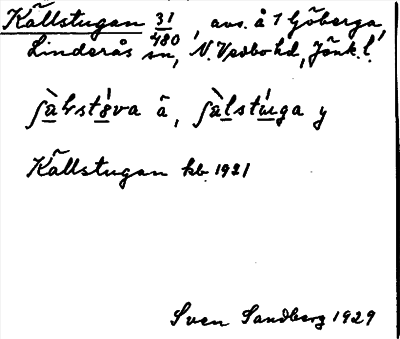 Källstugan 31/480, avs. å 1 Göberga,
Linderås sn, N. Vedbo hd, Jönk. l.
ʃàlstúga y
Källstugan kb. 1921
Sven Sandberg 1929